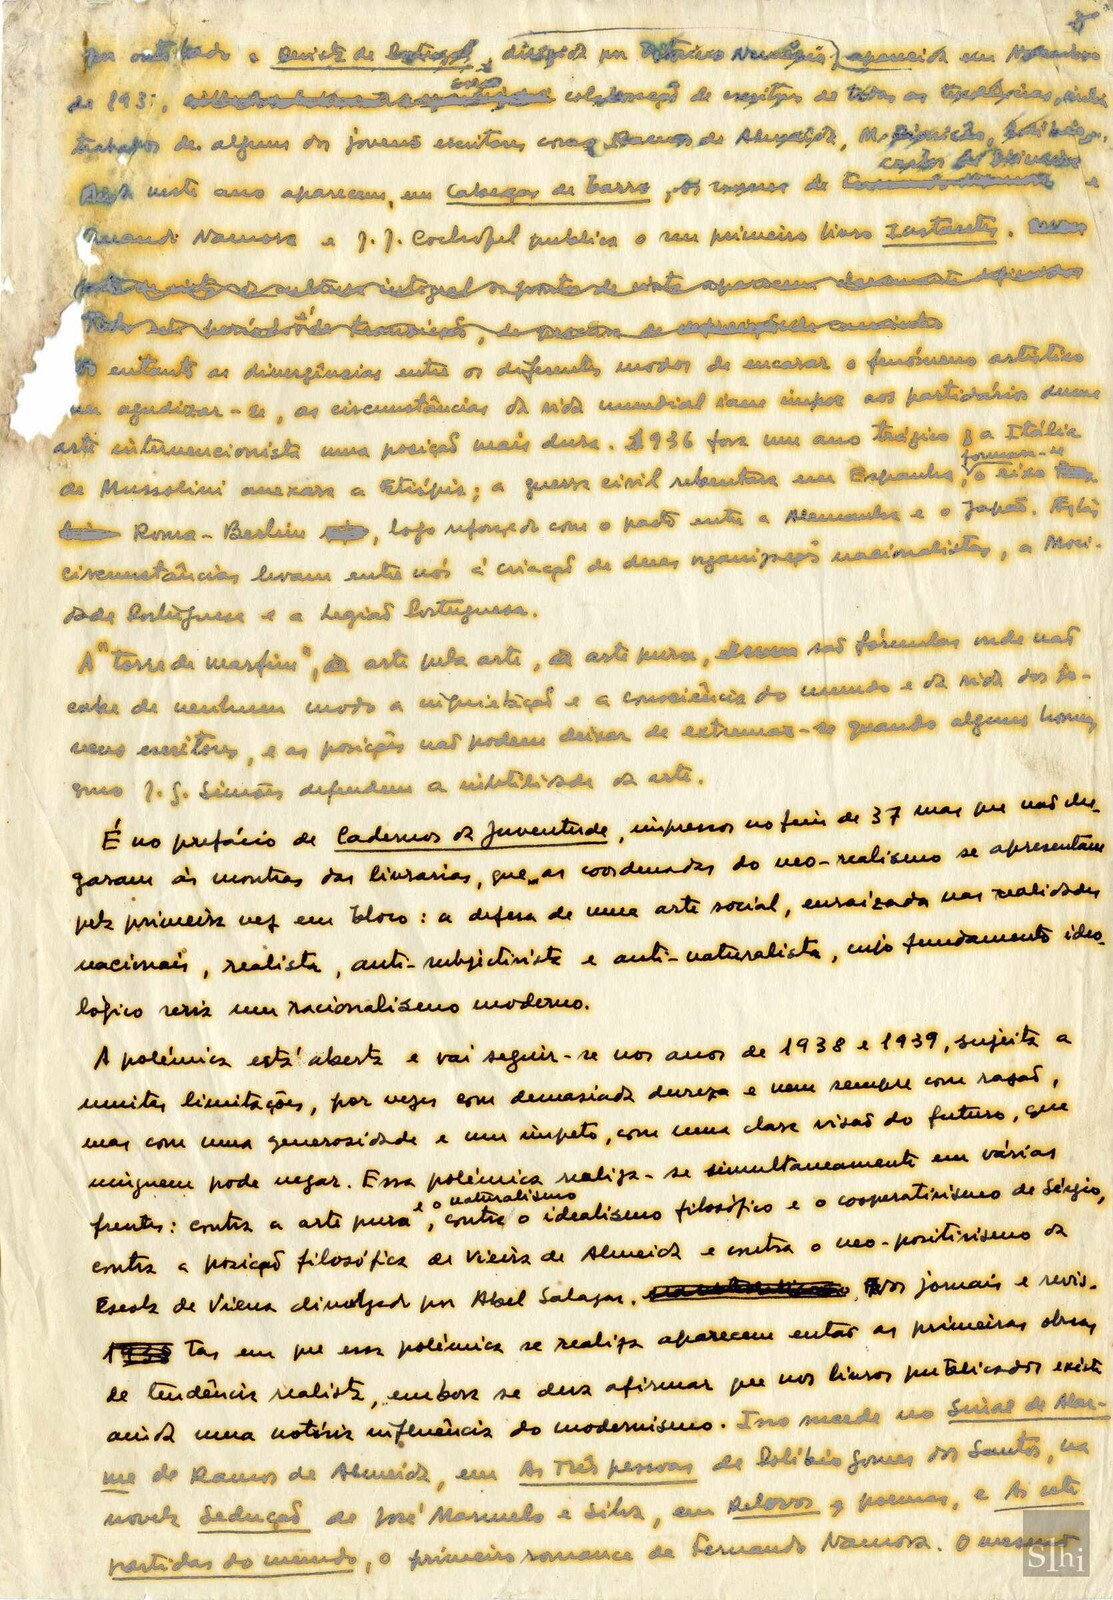 por outro lado a Revista de Portugal, dirigida por Vitorino Nemésio, aparecida em Novembro
de 1937, colaboração de escritores de todas as tendências, inclui
trabalhos de alguns dos jovens escritores como Ramos de Almeida, M.
neste ano aparecem, em Cabeças de Barro, os versos de Carlos de Oliveira e
Fernando Namora e J. J. Cochofel publica o seu primeiro livro Instantes.
ponto de vista de cultura integral os pontos de vista aparecem claramente definidos
período de transição, de procura de
No entanto as divergências entre os diferentes modos de encarar o fenómeno artístico
vão agudizar-se, as circunstâncias da vida mundial iam impor aos partidários duma
arte intervencionista uma posição mais dura. 1936 fora um ano trágico: a Itália
de Mussolini anexara a Etiópia; a guerra civil rebentara em Espanha; formara-se o eixo
Roma-Berlim, logo reforçado com o pacto entre a Alemanha e o Japão.
circunstâncias levam entre nós à criação de duas organizações nacionalistas, a Moci-
dade Portuguesa e a Legião Portuguesa.
A "torre de marfim", a arte pela arte, a arte pura, são fórmulas onde não
cabe de nenhum modo a inquietação e a consciência do mundo e da vida dos jo-
vens escritores, e as posições não podem deixar de extremar-se quando alguns homens
como J. G. Simões defendem a inutilidade da arte.
É no prefácio de Cadernos da Juventude, impressos no fim de 37 mas que não che-
garam às montras das livrarias, que as coordenadas do neo-realismo se apresentam
pela primeira vez em bloco: a defesa de uma arte social, enraizada nas realidades
nacionais, realista, anti-subjectivista e anti-naturalista, cujo fundamento ideo-
lógico seria um racionalismo moderno.
A polémica está aberta e vai seguir-se nos anos de 1938 e 1939, sujeita a
muitas limitações, por vezes com demasiada dureza e nem sempre com razão,
mas com uma generosidade e um ímpeto, com uma clara visão do futuro, que
ninguem pode negar. Essa polémica realiza-se simultaneamente em várias
frentes: contra a arte pura e o naturalismo, contra o idealismo filosófico e o cooperativismo de Sérgio,
contra a posição filosófica de Vieira de Almeida e contra o neo-positivismo da
Escola de Viena divulgado por Abel Salazar. Nos jornais e revis-
1938 tas em que essa polémica se realiza aparecem então as primeiras obras
de tendência realista, embora se deva afirmar que nos livros publicados existe
ainda uma notória influência do modernismo. Isso sucede no Sinal de Alar-
me de Ramos de Almeida, em As Três pessoas de Políbio Gomes dos Santos, na
novela Sedução de José Marmelo e Silva, em Relevos, poemas, e As sete
partidas do mundo, o primeiro romance de Fernando Namora. O mesmo
SIhi